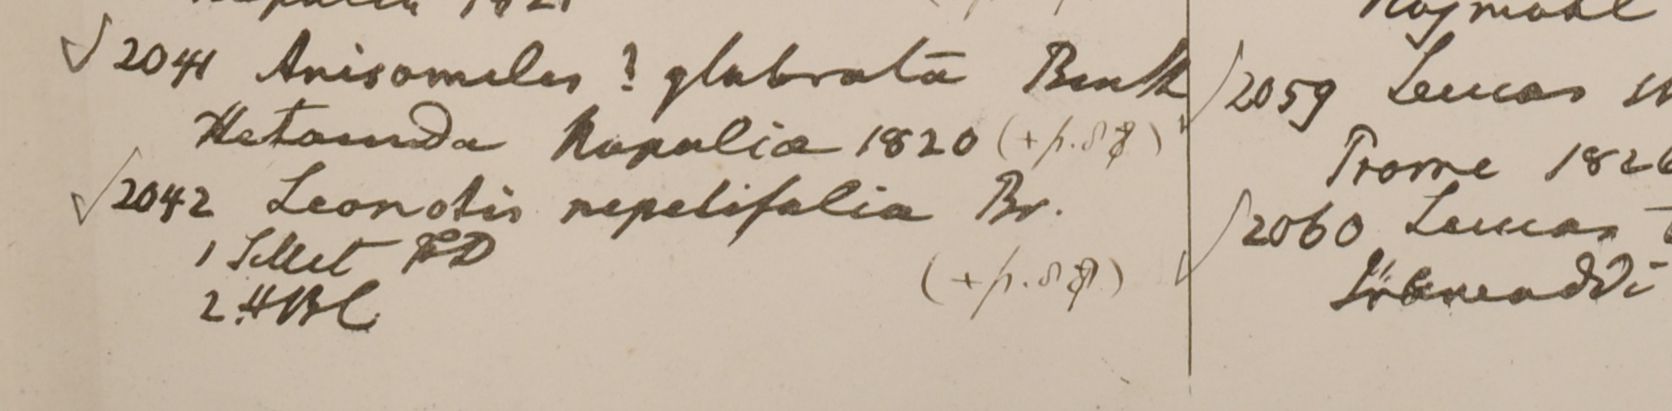 √ 2041 Anisomeles ? glabrata Benth
Hetounda Napalia 1820 (+p.
√ 2042 Leonotis nepetifolia Br.
1 Sillet FD
2 HBC
(+p.
√ 2059 Leucas
Prome 1826
√ 2060 Leucas